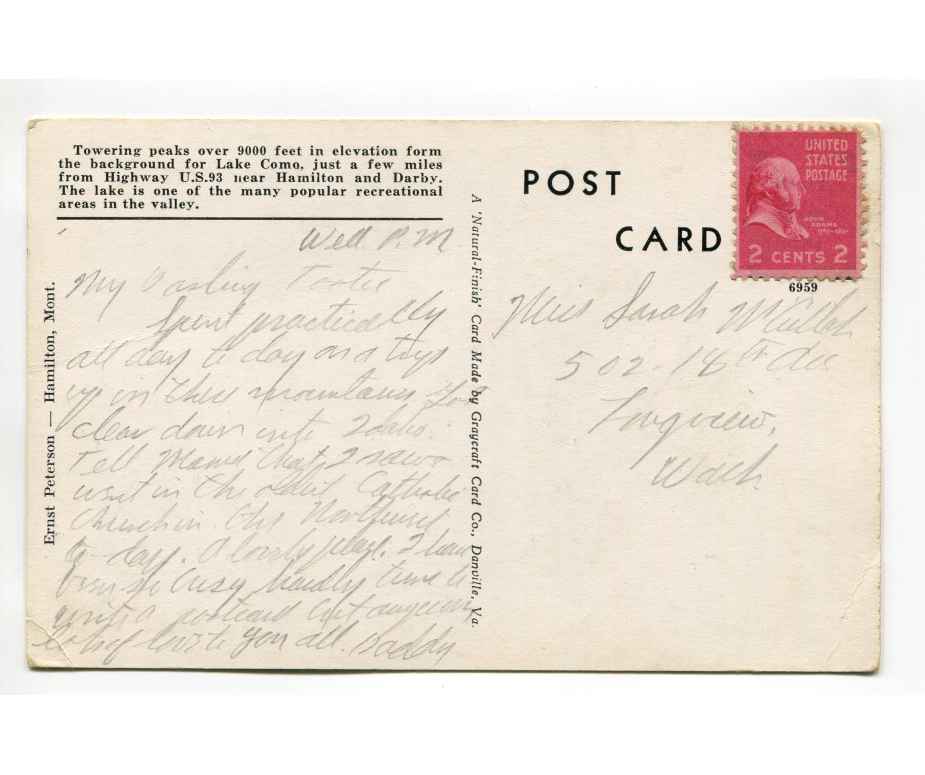 Towering peaks over 9000 feet in elevation form
the background for Lake Como, just a few miles
from Highway U.S.93 near Hamilton and Darby.
The lake is one of the many popular recreational
areas in the valley.
Ernst Peterson — Hamilton, Mont.
Wed P.M
My Darling
Spent practically
all day to day on a trip
up in these mountains
clear down into Idaho.
Tell Mama that I
went in the oldest Catholic
Church in the Northwest
to-day. A lovely place. I have
been so busy hardly time to
write a postcard but anyway
love to you all. Daddy
A 'Natural-Finish' Card Made by Graycraft Card Co., Danville, Va.
POST
CARD
UNITED
STATES
POSTAGE
JOHN
ADAMS
2 CENTS 2
6959
Miss Sarah
502-18th Ave
Longview,
Wash